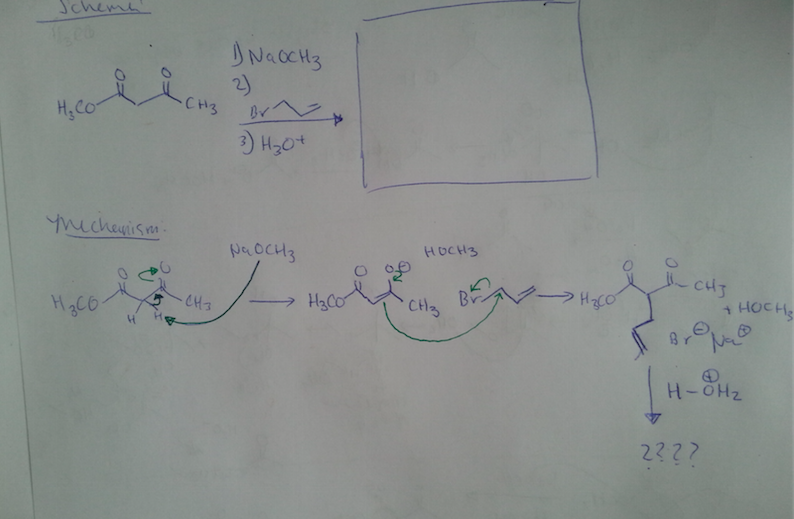 Schema
O O
H3CO CH3
1) NaOCH3
2)
Br
3) H3O+
Mechanism:
NaOCH3
HOCH3
O O
H3CO CH3
H H
O O⊖
H3CO CH3
Br
O O
H3CO CH3
+ HOCH3
Br⊖ Na⊕
H-O⊕H2
????